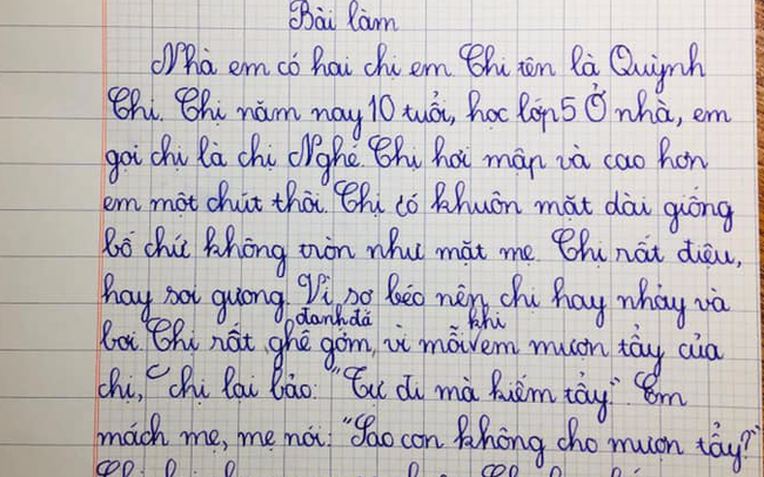 Bài làm
Nhà em có hai chị em. Chị tên là Quỳnh
Chi. Chị năm nay 10 tuổi, học lớp 5. Ở nhà, em
gọi chị là chị Nghé. Chị hơi mập và cao hơn
em một chút thôi. Chị có khuôn mặt dài giống
bố chứ không tròn như mặt mẹ. Chị rất điệu,
hay soi gương. Vì sợ béo nên chị hay nhảy và
đanh đá khi
bơi. Chị rất ghê gớm, vì mỗi em mượn tẩy của
chị, chị lại bảo: "Tự đi mà kiếm tẩy". Em
mách mẹ, mẹ nói: "Sao con không cho mượn tẩy?"